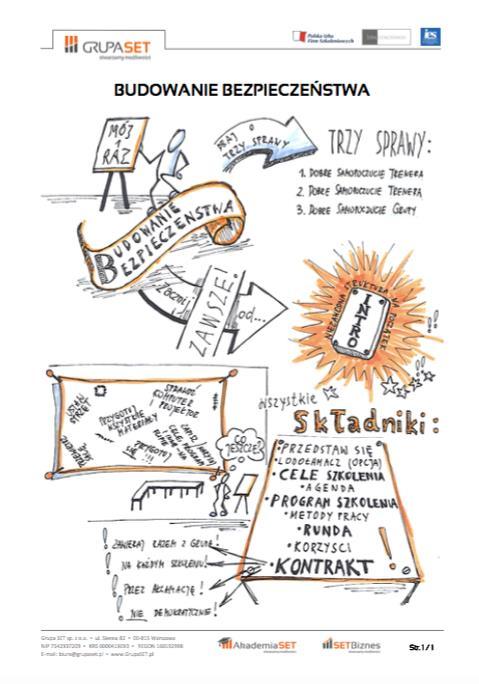 GRUPASET
stwarzamy możliwości
Polska Izba
Firm Szkoleniowych
ICS
BUDOWANIE BEZPIECZEŃSTWA
MÓJ
1
RAZ
DBAJ O
TRZY SPRAWY
TRZY SPRAWY:
1. DOBRE SAMOPOCZUCIE TRENERA
2. DOBRE SAMOPOCZUCIE TRENERA
3. DOBRE SAMOPOCZUCIE GRUPY
BUDOWANIE
BEZPIECZEŃSTWA
ZACZNIJ
ZAWSZE!
od...
NIEPARZYSTA STRUKTURA NA POCZĄTEK
INTRO
!!
!!
SPRAWDŹ
KOMPUTER
I PROJEKTOR
PRZYGOTUJ
WSZYSTKIE
MATERIAŁY
CELE, PROGRAM
PRZYGOTUJ
SIĘ !!!
CO
JESZCZE?
wszystkie
Składniki:
• PRZEDSTAW SIĘ
• LODOŁAMACZ (OPCJA)
• CELE SZKOLENIA
• AGENDA
• PROGRAM SZKOLENIA
• METODY PRACY
• RUNDA
• KORZYŚCI
• KONTRAKT !
! ZAWIERAJ RAZEM Z GRUPĄ!
! NA KAŻDYM SZKOLENIU!
! PRZEZ AKLAMACJĘ!
! NIE DEMOKRATYCZNIE!
Grupa SET sp. z o.o. • ul. Sienna 82 • 00-815 Warszawa
E-mail: biuro@grupaset.pl • www.GrupaSET.pl
AkademiaSET
SETBiznes
Str. 1 / 1